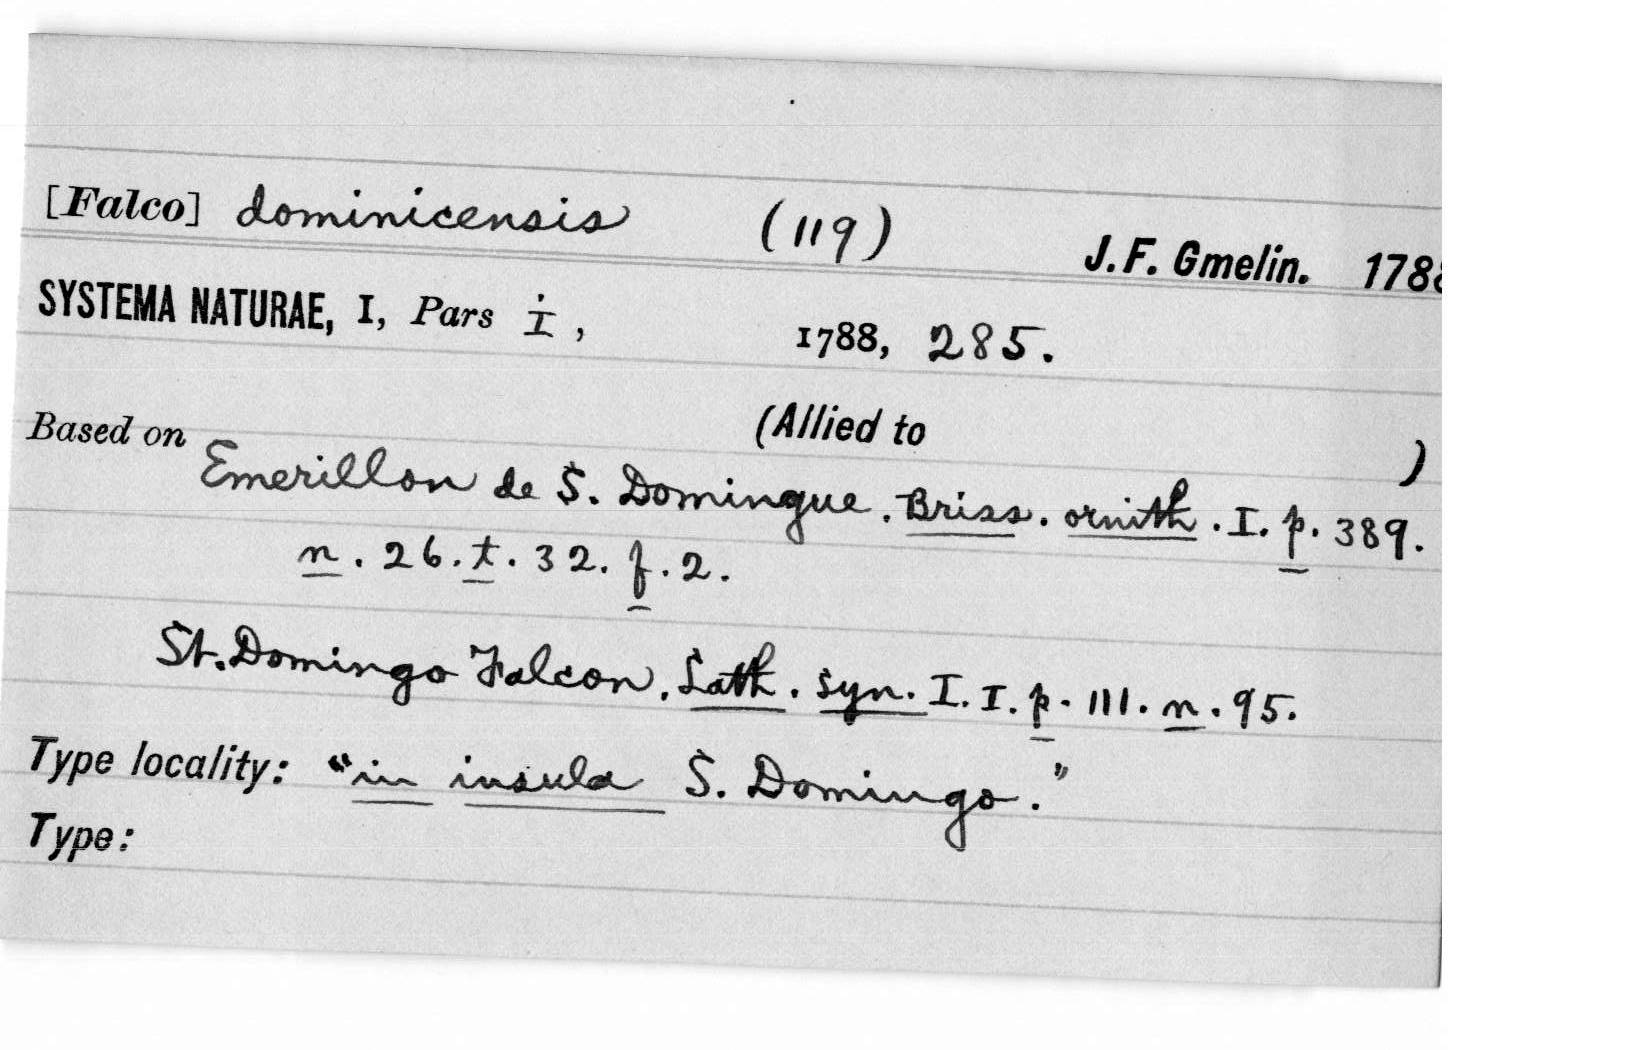 [Falco] dominicensis (119) J.F. Gmelin. 1788
SYSTEMA NATURAE, I, Pars i, 1788, 285.
Based on (Allied to )
Emerillon de S. Domingue. Briss. ornith. I. p. 389.
n. 26. t. 32. f. 2.
St. Domingo Falcon. Lath. syn. I. I. p. 111. n. 95.
Type locality: "in insula S. Domingo."
Type: